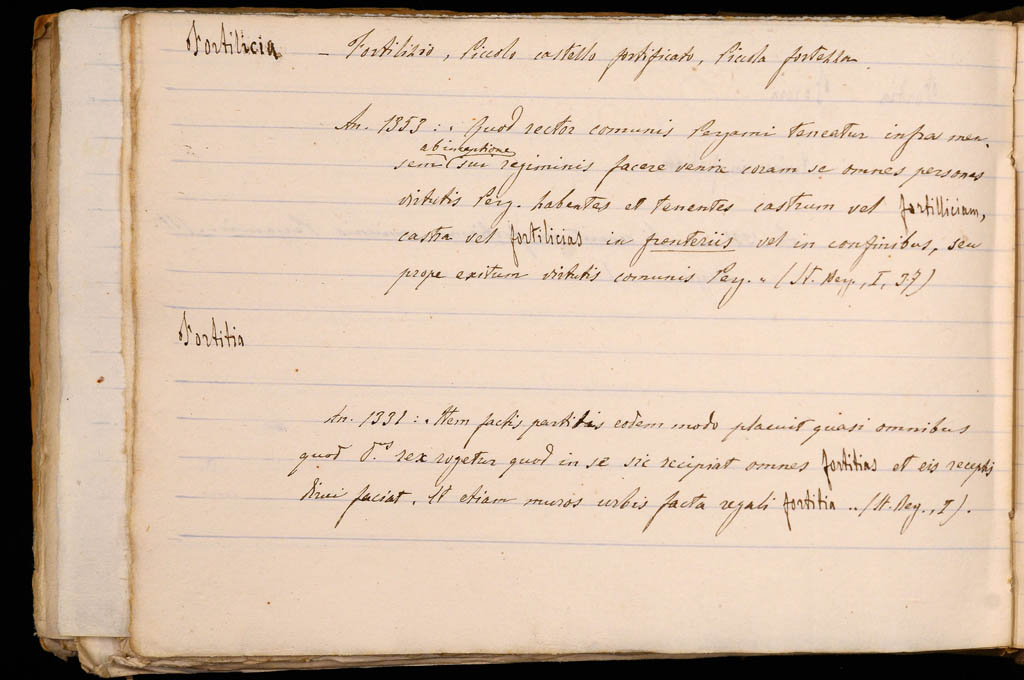 Fortilicia – Fortilizio, Piccolo castello fortificato, Piccola fortezza.
An. 1353: „ Quod rector comunis Pergami teneatur infra men-
ab inceptione
sem sui regiminis facere venire coram se omnes personas
virtutis Perg. habentes et tenentes castrum vel fortilliciam,
castra vel fortilicias in fronteriis vel in confinibus, seu
prope exitum virtutis comunis Perg. „ (St. Berg., I, 37)
Fortitia
An. 1331: „ Item factis partitis eodem modo placuit quasi omnibus
quod D.ns rex rogetur quod in se sic recipiat omnes fortitias et eis receptis
dirui faciat. Et etiam muros urbis facta regali fortitia „. (St. Berg., I).